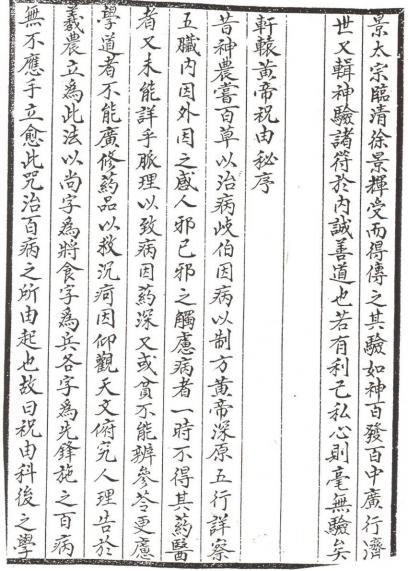 景太宗臨清徐景輝受而得傳之其驗如神百發百中廣行濟
世又輯神驗諸符於內誠善道也若有利己私心則毫無驗矣
軒轅黃帝祝由秘序
昔神農嘗百草以治病岐伯因病以制方黃帝深原五行詳察
五臟內因外因之感人邪己邪之觸慮病者一時不得其藥醫
者又未能詳乎脈理以致病因藥深又或貧不能辨參苓更慮
學道者不能廣修藥品以救沉疴因仰觀天文俯究人理告於
羲農立為此法以尚字為將食字為兵各字為先鋒施之百病
無不應手立愈此咒治百病之所由起也故曰祝由科後之學